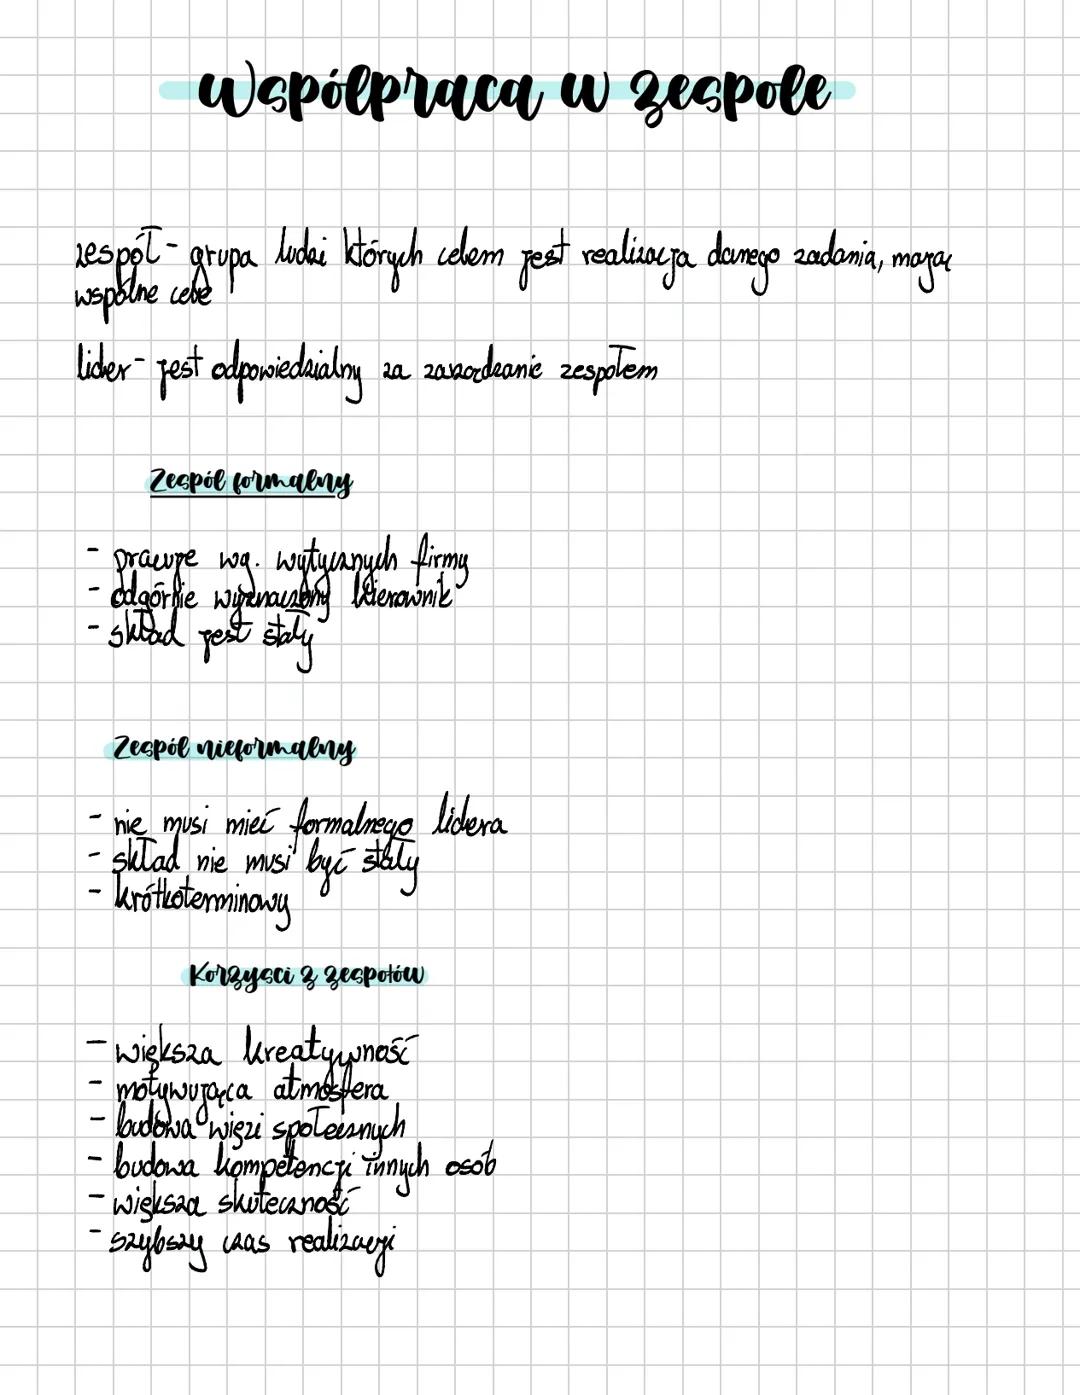 Współpraca w zespole
zespół - grupa ludzi których celem jest realizacja danego zadania, mając
wspólne cele
lider - jest odpowiedzialny za zarządzanie zespołem
Zespół formalny
- pracuje wg. wytycznych firmy
- odgórnie wyznaczony kierownik
- skład jest stały
Zespół nieformalny
- nie musi mieć formalnego lidera
- skład nie musi być stały
- krótkoterminowy
Korzyści z zespołów
- większa kreatywność
- motywująca atmosfera
- budowa więzi społecznych
- budowa kompetencji innych osób
- większa skuteczność
- szybszy czas realizacji